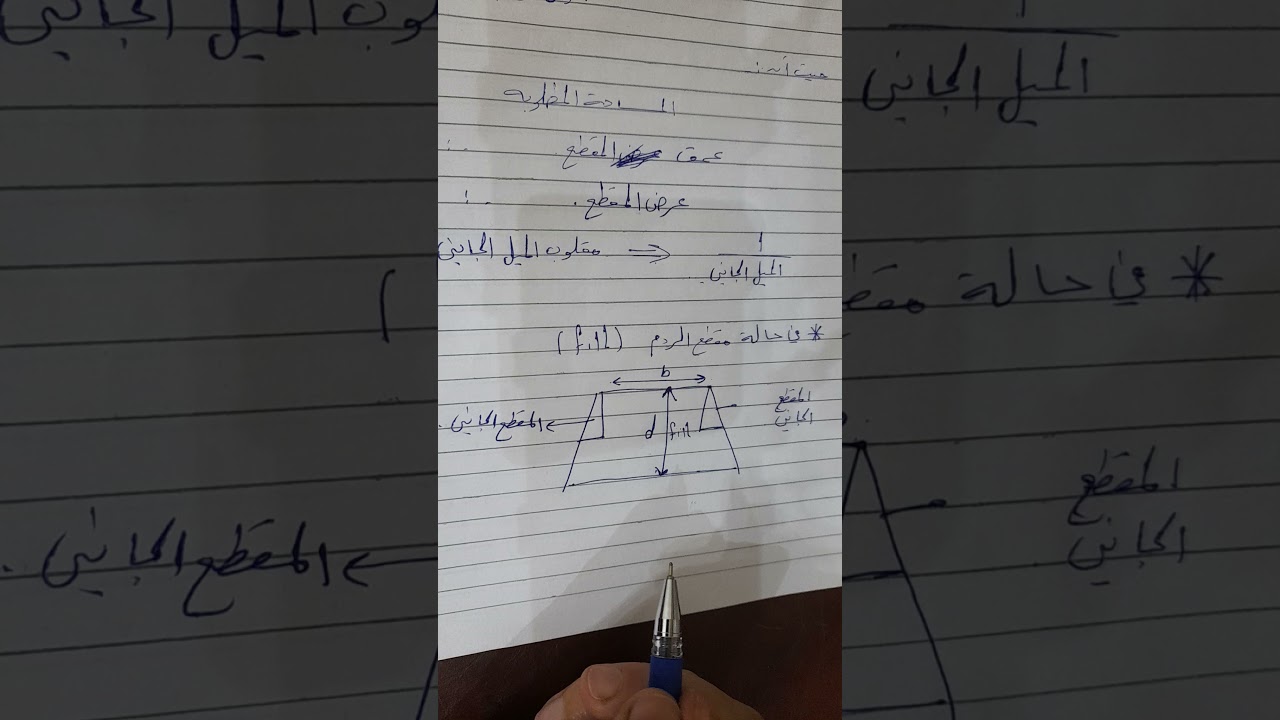 حيث أن :
المساحة المطلوبة
عمق المقطع :
عرض المقطع . :
١ / الميل الجانبي ⇐ مقلوب الميل الجانبي
* في حالة مقطع الردم (fill)
b
المقطع الجانبي
d fill
المقطع الجانبي .